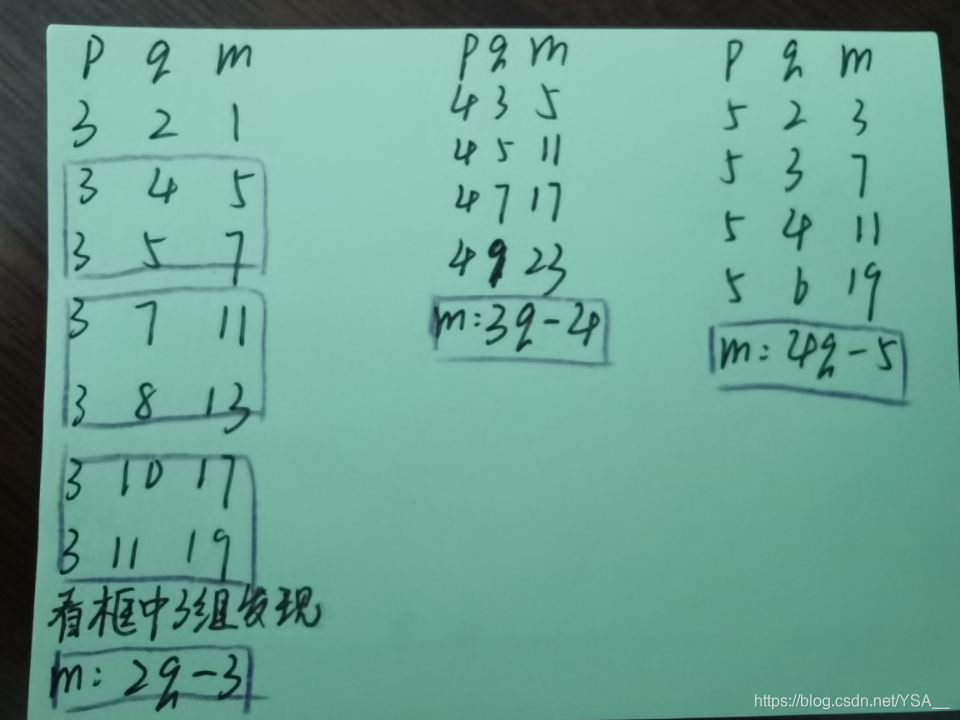 p q m
3 2 1
3 4 5
3 5 7
3 7 11
3 8 13
3 10 17
3 11 19
看框中3组发现
m: 2q-3
p q m
4 3 5
4 5 11
4 7 17
4 9 23
m:3q-4
p q m
5 2 3
5 3 7
5 4 11
5 6 19
m: 4q-5
https://blog.csdn.net/YSA__